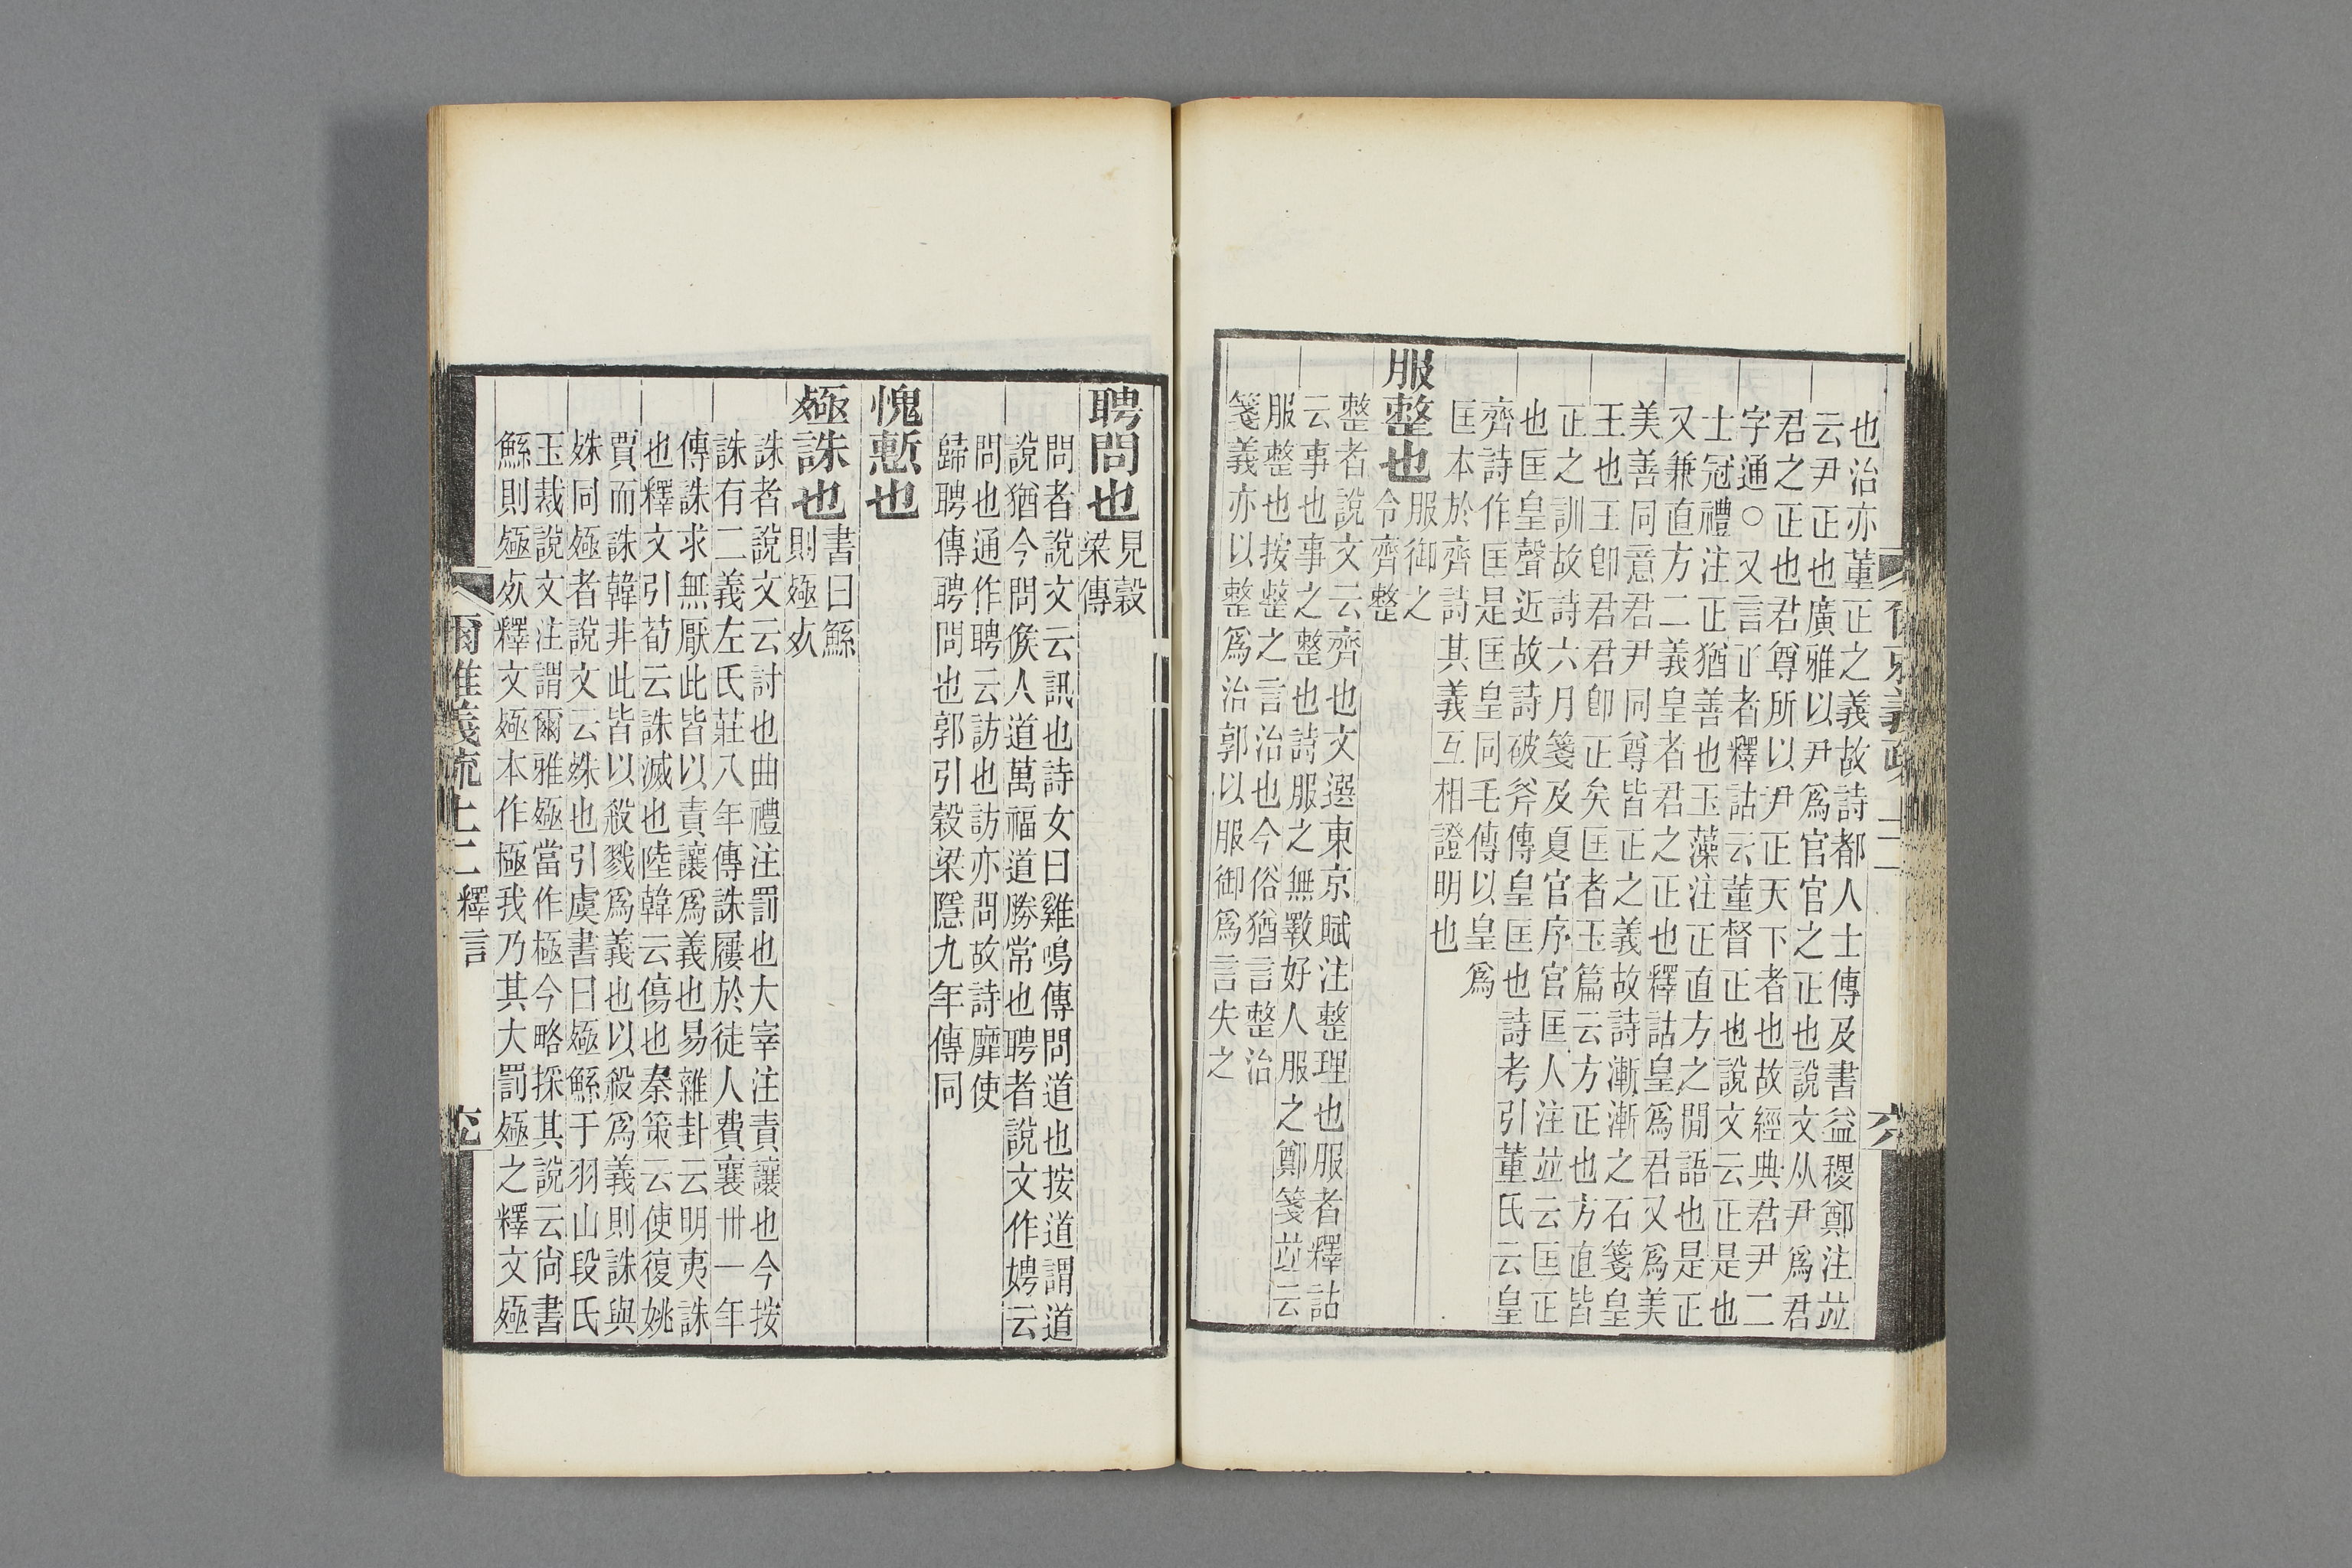 也治亦董正之義故詩都人士傳及書益稷鄭注並
云尹正也廣雅以尹爲官官之正也說文从尹爲君
君之正也君尊所以尹正天下者也故經典君尹二
字通○又言正者釋詁云董督正也說文云正是也
士冠禮注正猶善也玉藻注正直方之閒語也是正
又兼直方二義皇者君之正也釋詁皇爲君又爲美
美善同意君尹同尊皆正之義故詩漸漸之石箋皇
王也王卽君君卽正矣匡者玉篇云方正也方直皆
正之訓故詩六月箋及夏官序官匡人注並云匡正
也匡皇聲近故詩破斧傳皇匡也詩考引董氏云皇
齊詩作匡是匡皇同毛傳以皇爲
匡本於齊詩其義互相證明也
服整也
服御之
令齊整
整者說文云齊也文選東京賦注整理也服者釋詁
云事也事之整也詩服之無斁好人服之鄭箋並云
服整也按整之言治也今俗猶言整治
箋義亦以整爲治郭以服御爲言失之
聘問也
見穀
梁傳
問者說文云訊也詩女曰雞鳴傳問道也按道謂道
說猶今問候人道萬福道勝常也聘者說文作娉云
問也通作聘云訪也訪亦問故詩靡使
歸聘傳聘問也郭引穀梁隱九年傳同
愧慙也
殛誅也
書曰鯀
則殛㱙
誅者說文云討也曲禮注罰也大宰注責讓也今按
誅有二義左氏莊八年傳誅屨於徒人費襄卅一年
傳誅求無厭此皆以責讓爲義也易雜卦云明夷誅
也釋文引荀云誅滅也陸韓云傷也秦策云使復姚
賈而誅韓非此皆以殺戮爲義也以殺爲義則誅與
殊同殛者說文云殊也引虞書曰殛鯀于羽山段氏
玉裁說文注謂爾雅殛當作極今略採其說云尙書
鯀則殛㱙釋文殛本作極我乃其大罰殛之釋文殛
爾雅義疏上二 釋言